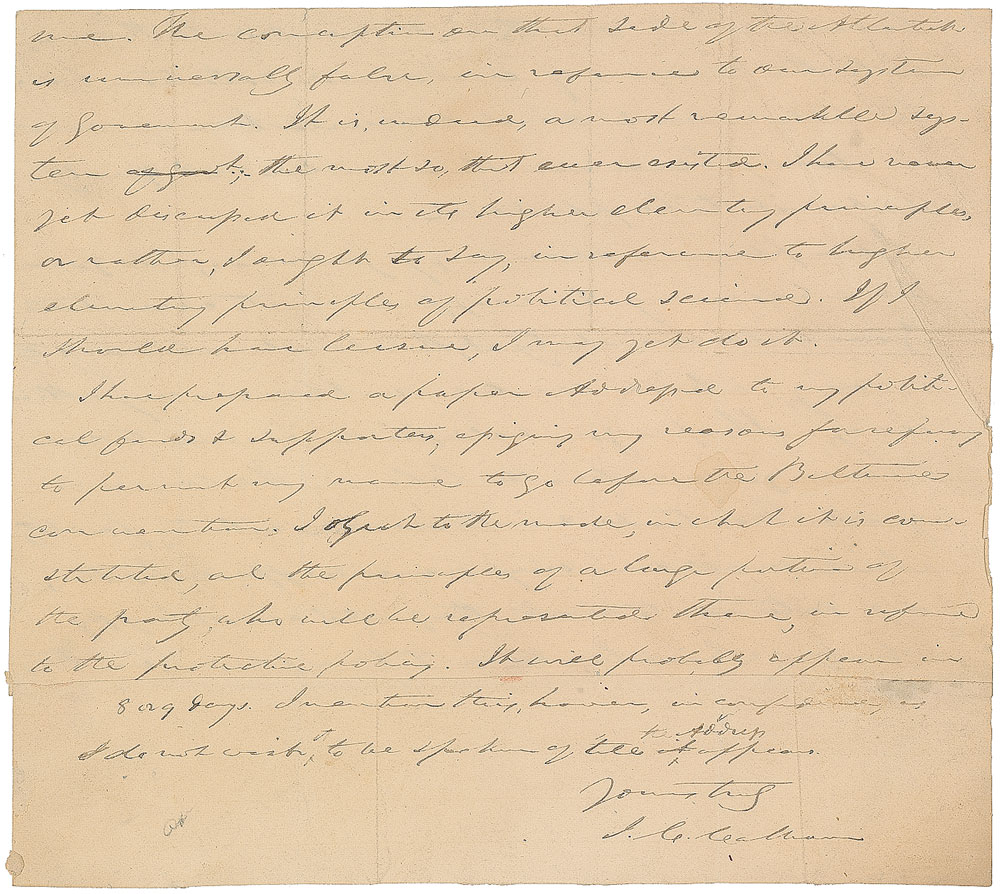 me. The conception on that side of the Atlantick
is universally false, in reference to our system
of Government. It is, indeed, a most remarkable sys-
tem of govt; the most so, that ever existed. I have never
yet discussed it in its higher elementary principles,
or rather, I ought to say, in reference to higher
elementary principles of political science. If I
should have leisure, I may yet do it.
I have prepared a paper Addressed to my politi-
cal friends & supporters, assigning my reasons for refusing
to permit my name to go before the Baltimore
convention. I object to the mode, in which it is con-
stituted, and the principles of a large portion of
the party, who will be represented there, in reference
to the protective policy. It will probably appear in
8 or 9 days. I mention this, however, in confidence, as
I do not wish it to be spoken of till the Address appears.
Yours truly
J. C. Calhoun